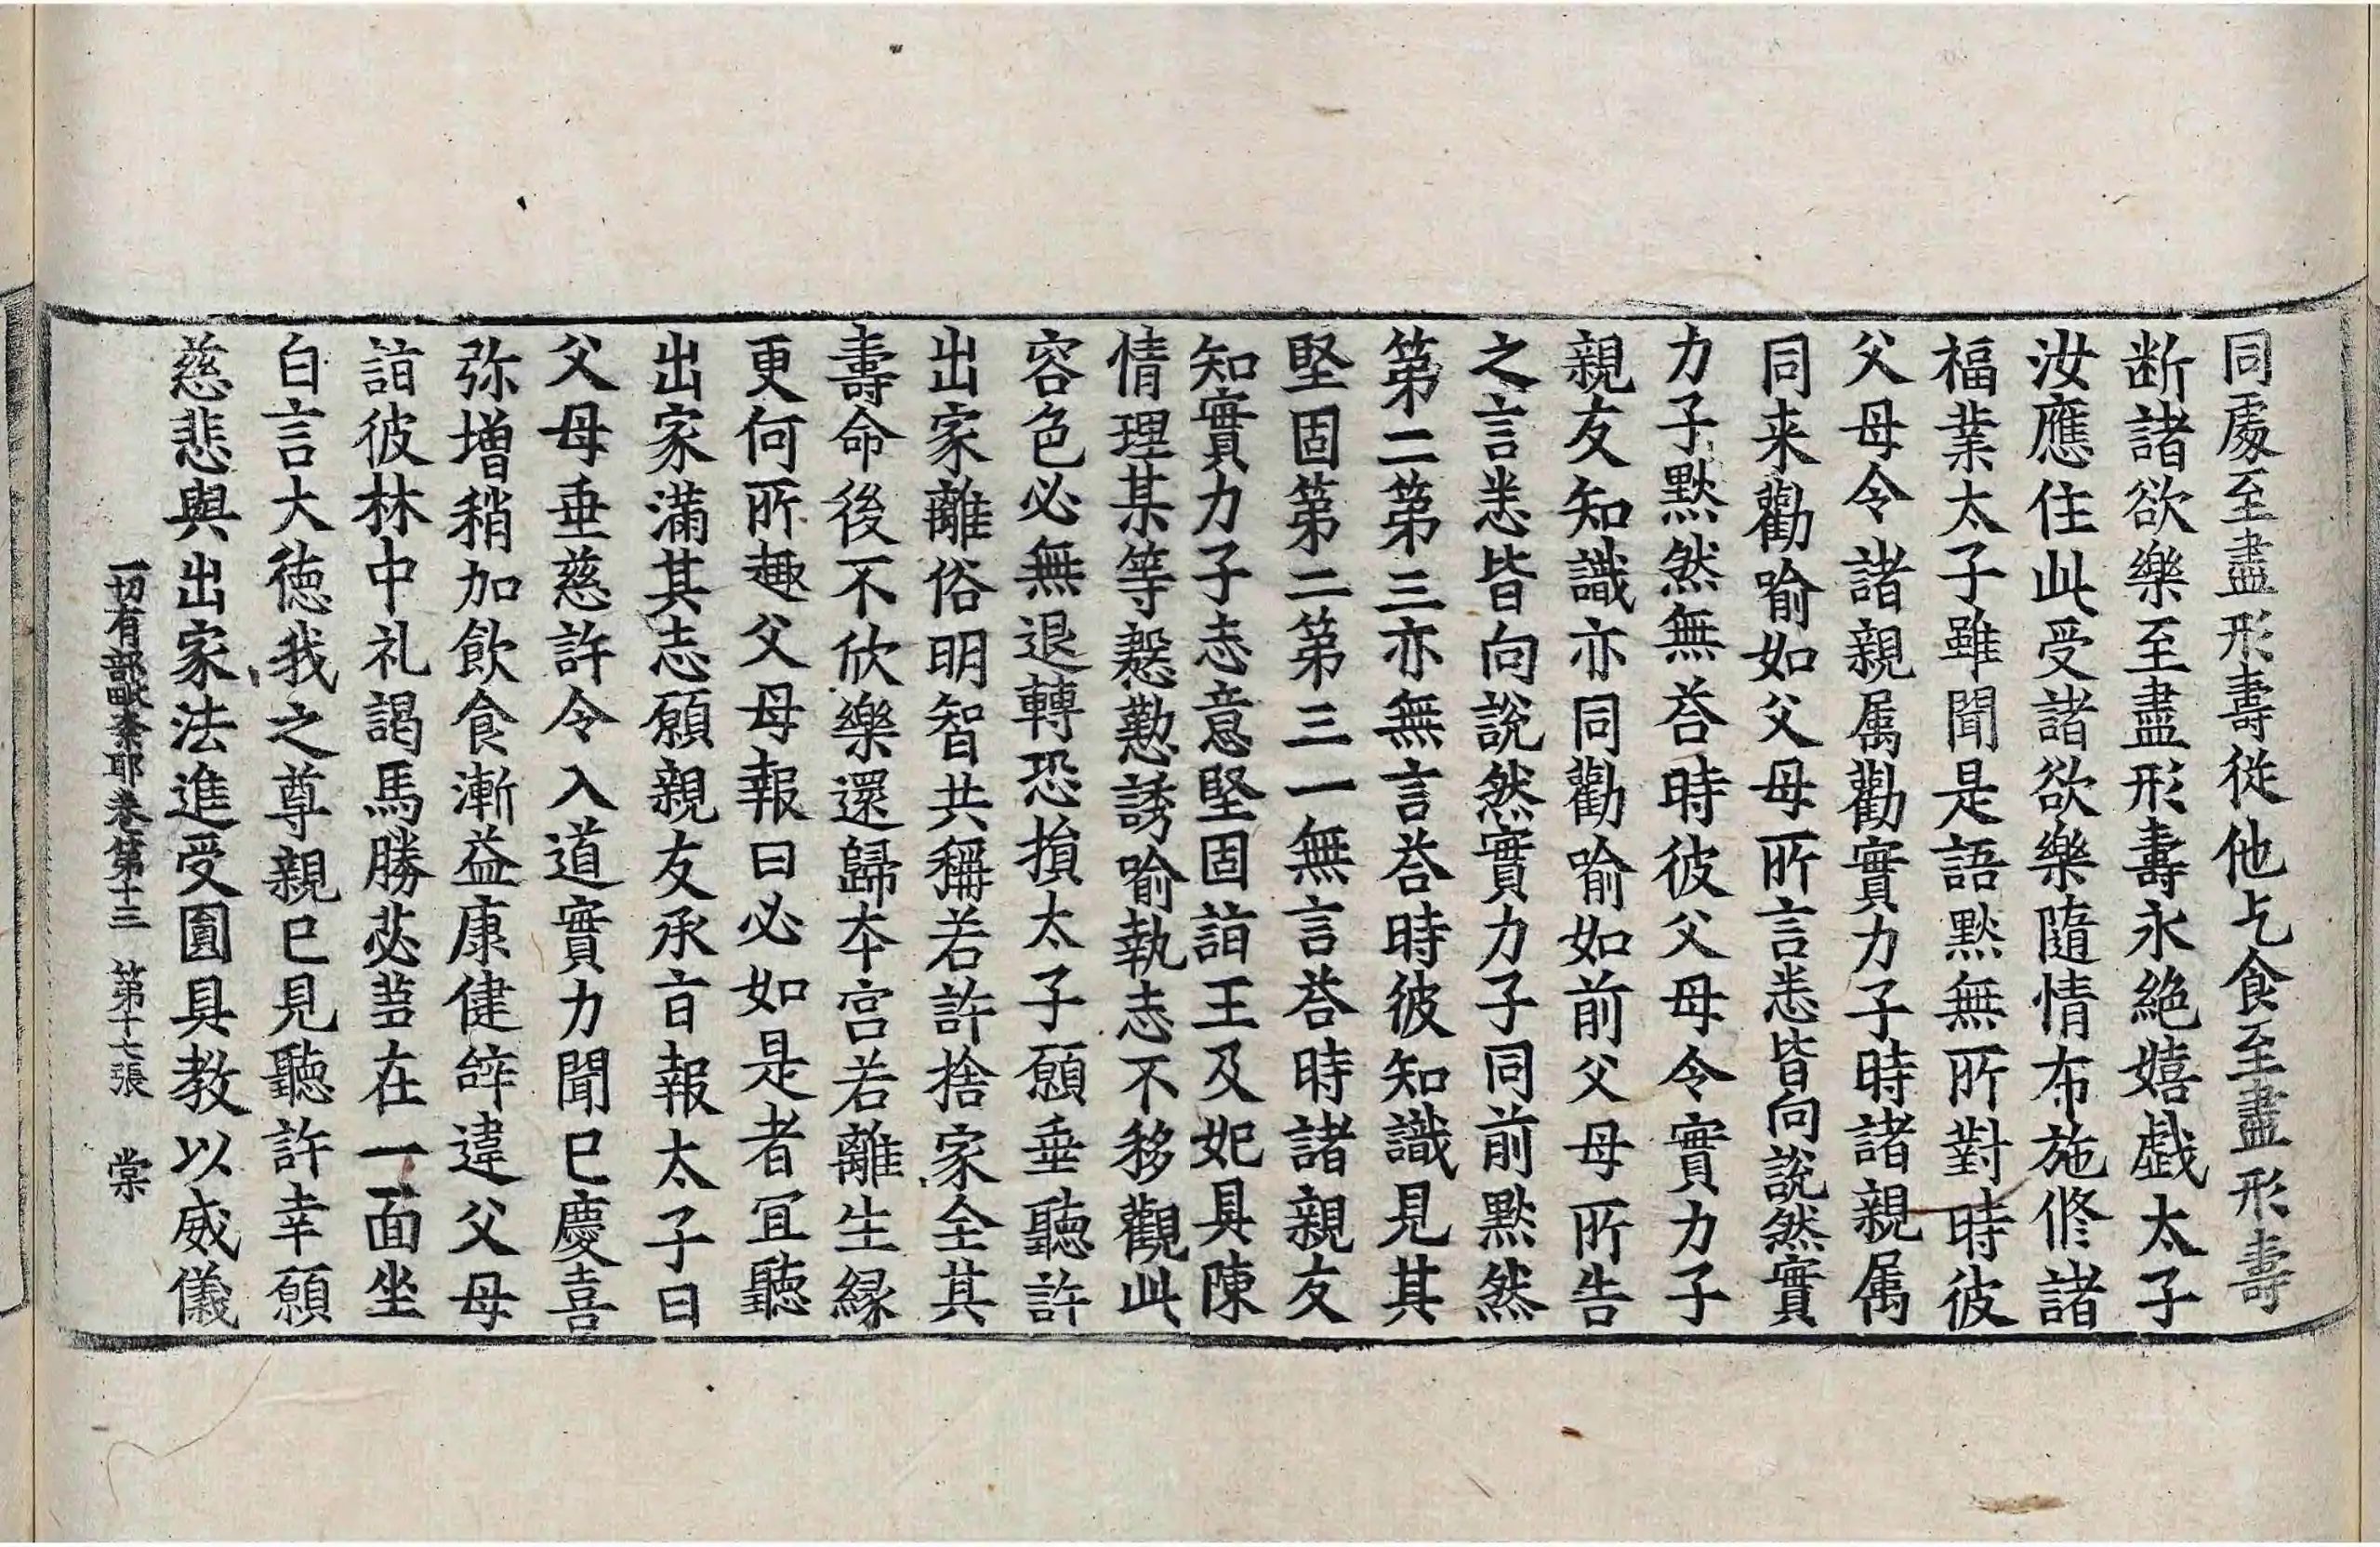 同處至盡形壽從他乞食至盡形壽
断諸欲樂至盡形壽永絶嬉戯太子
汝應住此受諸欲樂隨情布施修諸
福業太子雖聞是語黙無所對時彼
父母令諸親属勸實力子時諸親属
同来勸喻如父母所言悉皆向說然實
力子黙然無荅時彼父母令實力子
親友知識亦同勸喻如前父母所告
之言悉皆向說然實力子同前黙然
第二第三亦無言荅時彼知識見其
堅固第二第三一無言荅時諸親友
知實力子志意堅固詣王及妃具陳
情理某等慇懃誘喻執志不移觀此
容色必無退轉恐損太子願垂聽許
出家離俗明智共稱若許捨家全其
壽命後不欣樂還歸本宮若離生縁
更何所趣父母報曰必如是者冝聽
出家滿其志願親友承旨報太子曰
父母垂慈許令入道實力聞已慶喜
弥增稍加飲食漸益康健辝違父母
詣彼林中礼謁馬勝苾芻在一面坐
白言大德我之尊親已見聽許幸願
慈悲與出家法進受圓具教以威儀
一切有部毗奈耶卷第十三 第十七張 棠